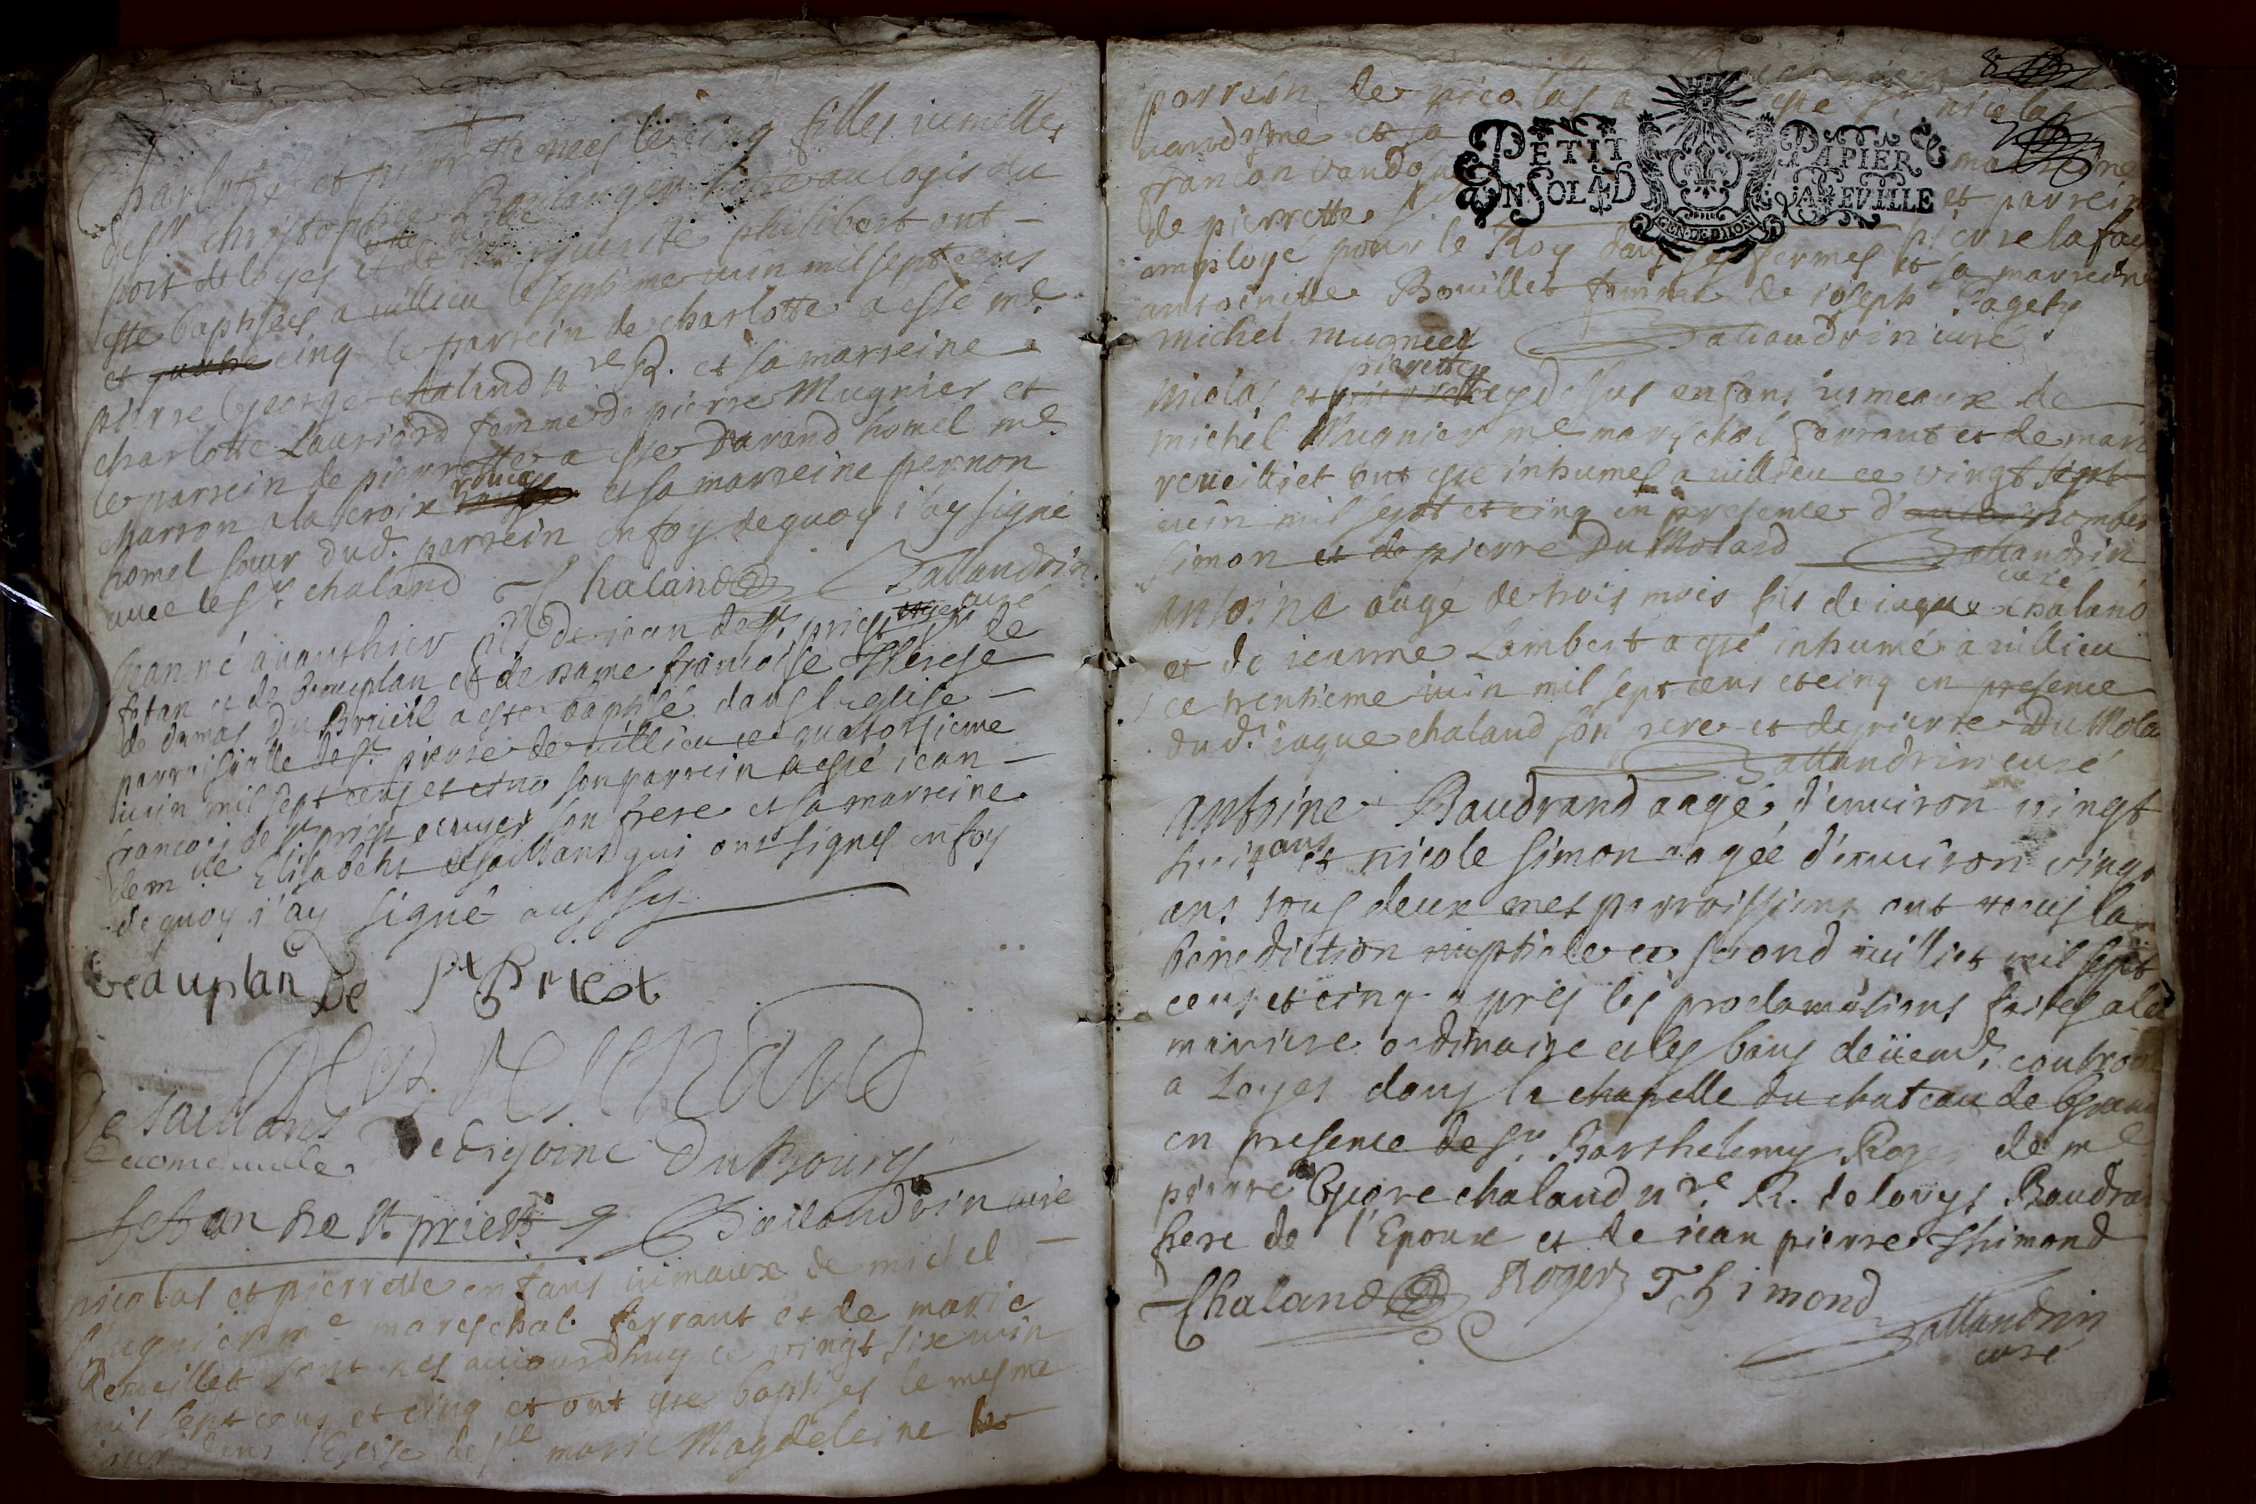 Charlotte et pierrette nees le cinq filles iumelles
de sr christophe Boulanger hoste au logis du
port de loyes et de marguerite philibert ont
este baptisees a villieu le septieme iuin mil sept cens
et cinq le parrein de charlotte a esté me
pierre George chaland nre R. et sa marreine
charlotte Lauriard femme de pierre Mugnier et
le parrein de pierrette a este Durand homel me
Marron a la croix rouge et sa marreine pernon
homel sœur dud. parrein en foy de quoy i'ay signé
avec le sr chaland Chaland Ballandrin
curé
Jean né avanthier fils de iean de st priest escuyer sr de
fetan et de Beauplan et de Dame francoise Therese
de damas Du Brueil a esté baptisé dans l'eglise
parroissialle de st pierre de villieu ce quatorsieme
iuin mil sept cens et cinq son parrein a esté iean
francois de st priest ecuyer son frere et sa marreine
demlle Elisabeht de saillans qui ont signes en foy
de quoy i'ay signé aussy
beauplan De st Priest
De saillans
De Grysoine DuBourg
fetan De st priest Ballandrin curé
nicolas et pierrette enfans iumaux de michel
Mugnier me mareschal ferrant et de marie
Reveillet sont nes auiourdhuy ce vingt six iuin
mil sept cens et cinq et ont este baptises le mesme
iour dans l'Eglise de ste marie Magdeleine le
parrein de nicolas a este sr nicolas
vandosme et sa marreine
francon vandosme et parrein
de pierrette sr pierre la fay
employé pour le Roy dans ses fermes et sa marreine
antoinette Bouillet femme de ioseph Pagety
michel mugnier Ballandrin curé
nicolas et pierrette cy dessus enfans iumeaux de
michel Mugnier me mareschal ferrant et de marie
reveilliet ont esté inhumes a villieu ce vingt sept
iuin mil sept et cinq en presence d'
simon et de pierre Du Molard Ballandrin
curé
Antoine aagé de trois mois fils de iaque chaland
et de ieanne Lambert a esté inhumé a villieu
ce trentieme iuin mil sept cens et cinq en presence
dud. iaque chaland son pere et de pierre Du Mola
Ballandrin curé
Antoine Baudrand aagé d'environ vingt
huit ans et nicole simon aagée d'environ vingt
ans tous deux mes parroissiens ont receus la
benediction nuptiale ce second iuilliet mil sept
cens et cinq apprés les proclamations faites a la
maniere ordinaire et les bans deüemt controo
a Loyes dans la chapelle du chateau de
en presence de sr Barthelemy Roger de me
pierre George chaland nre R. de louys Baudra
frere de l'Epoux et de iean pierre Thimond
Chaland Roger Thimond
Ballandrin
curé
PETIT PAPIER
UN SOL 4 D LA FEUILLE
GEN. DE DIJON
8